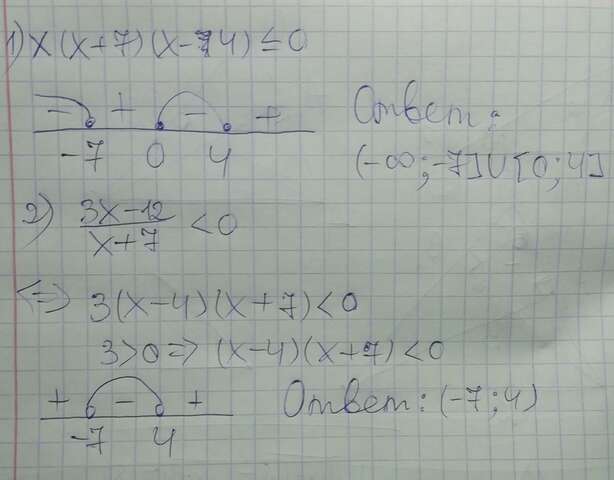 1) x(x+7)(x-4) ≤ 0
- + - +
-7 0 4
Ответ:
(-∞; -7] U [0; 4]
2) 3x-12 / x+7 < 0
<=> 3(x-4)(x+7) < 0
3>0 => (x-4)(x+7) < 0
+ - +
-7 4
Ответ: (-7; 4)